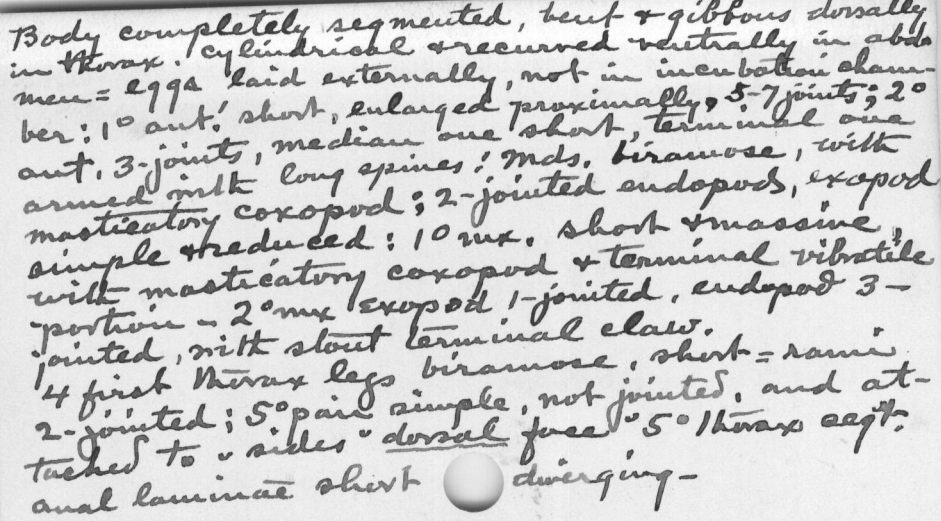 Body completely segmented, bent & gibbous dorsally
in thorax. cylindrical & recurved ventrally in abdo
men = eggs laid externally, not in incubation cham-
ber: 1° ant. short, enlarged proximally, 5-7 joints; 2°
ant. 3-joints, median one short, terminal one
armed with long spines: mds. biramose, with
masticatory coxopod; 2-jointed endopods, exopod
simple & reduced: 1° mx. short & massive,
with masticatory coxopod & terminal vibratile
portion - 2° mx exopod 1-jointed, endopod 3-
jointed, with stout terminal claw.
4 first thorax legs biramose, short = rami
2-jointed; 5° pair simple, not jointed, and at-
tached to " sides " dorsal face " 5° thorax segt.
anal laminae short diverging-